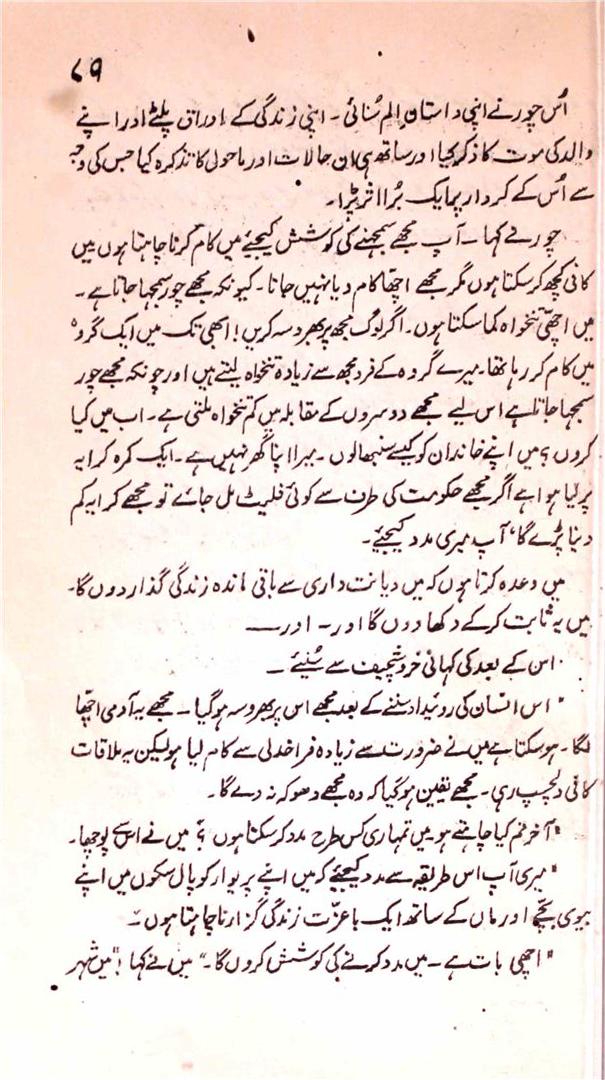 ۸۹
اُس چور نے اپنی داستانِ الم سُنائی ۔ اپنی زندگی کے اوراق پلٹے اور اپنے
والد کی موت کا ذکر کیا اور ساتھ ہی ان حالات اور ماحول کا تذکرہ کیا جس کی وجہ
سے اُس کے کردار پر ایک بُرا اثر پڑا ۔
چور نے کہا ۔ آپ مجھے سمجھنے کی کوشش کیجئے میں کام کرنا چاہتا ہوں میں
کافی کچھ کر سکتا ہوں مگر مجھے اچھا کام دیا نہیں جاتا ۔ کیونکہ مجھے چور سمجھا جاتا ہے ۔
میں اچھی تنخواہ کما سکتا ہوں ۔ اگر لوگ مجھ پر بھروسہ کریں! ابھی تک میں ایک گروہ
میں کام کر رہا تھا ۔ میرے گروہ کے فرد مجھ سے زیادہ تنخواہ لیتے ہیں اور چونکہ مجھے چور
سمجھا جاتا ہے اس لیے مجھے دوسروں کے مقابلہ میں کم تنخواہ ملتی ہے ۔ اب میں کیا
کروں ؟ میں اپنے خاندان کو کیسے سنبھالوں ۔ میرا اپنا گھر نہیں ہے ۔ ایک کمرہ کرایہ
پر لیا ہوا ہے اگر مجھے حکومت کی طرف سے کوئی فلیٹ مل جائے تو مجھے کرایہ کم
دینا پڑے گا ، آپ میری مدد کیجئے ۔
میں وعدہ کرتا ہوں کہ میں دیانت داری سے باقی ماندہ زندگی گذار دوں گا ۔
میں یہ ثابت کر کے دکھا دوں گا اور ۔ اور ــــ
اس کے بعد کی کہانی خروشچیف سے سُنیئے ۔
" اس انسان کی روئیداد سننے کے بعد مجھے اس پر بھروسہ ہو گیا ۔ مجھے یہ آدمی اچھا
لگا ۔ ہو سکتا ہے میں نے ضرورت سے زیادہ فراخدلی سے کام لیا ہو لیکن یہ ملاقات
کافی دلچسپ رہی ۔ مجھے یقین ہو گیا کہ وہ مجھے دھوکہ نہ دے گا ۔
" آخر تم کیا چاہتے ہو میں تمہاری کس طرح مدد کر سکتا ہوں ؟ میں نے اس سے پوچھا ۔
" میری آپ اس طریقہ سے مدد کیجئے کہ میں اپنے پریوار کو پال سکوں میں اپنے
بیوی بچے اور ماں کے ساتھ ایک باعزّت زندگی گزارنا چاہتا ہوں ۔
" اچھی بات ہے ۔ میں مدد کرنے کی کوشش کروں گا ۔" میں نے کہا !" میں شہر